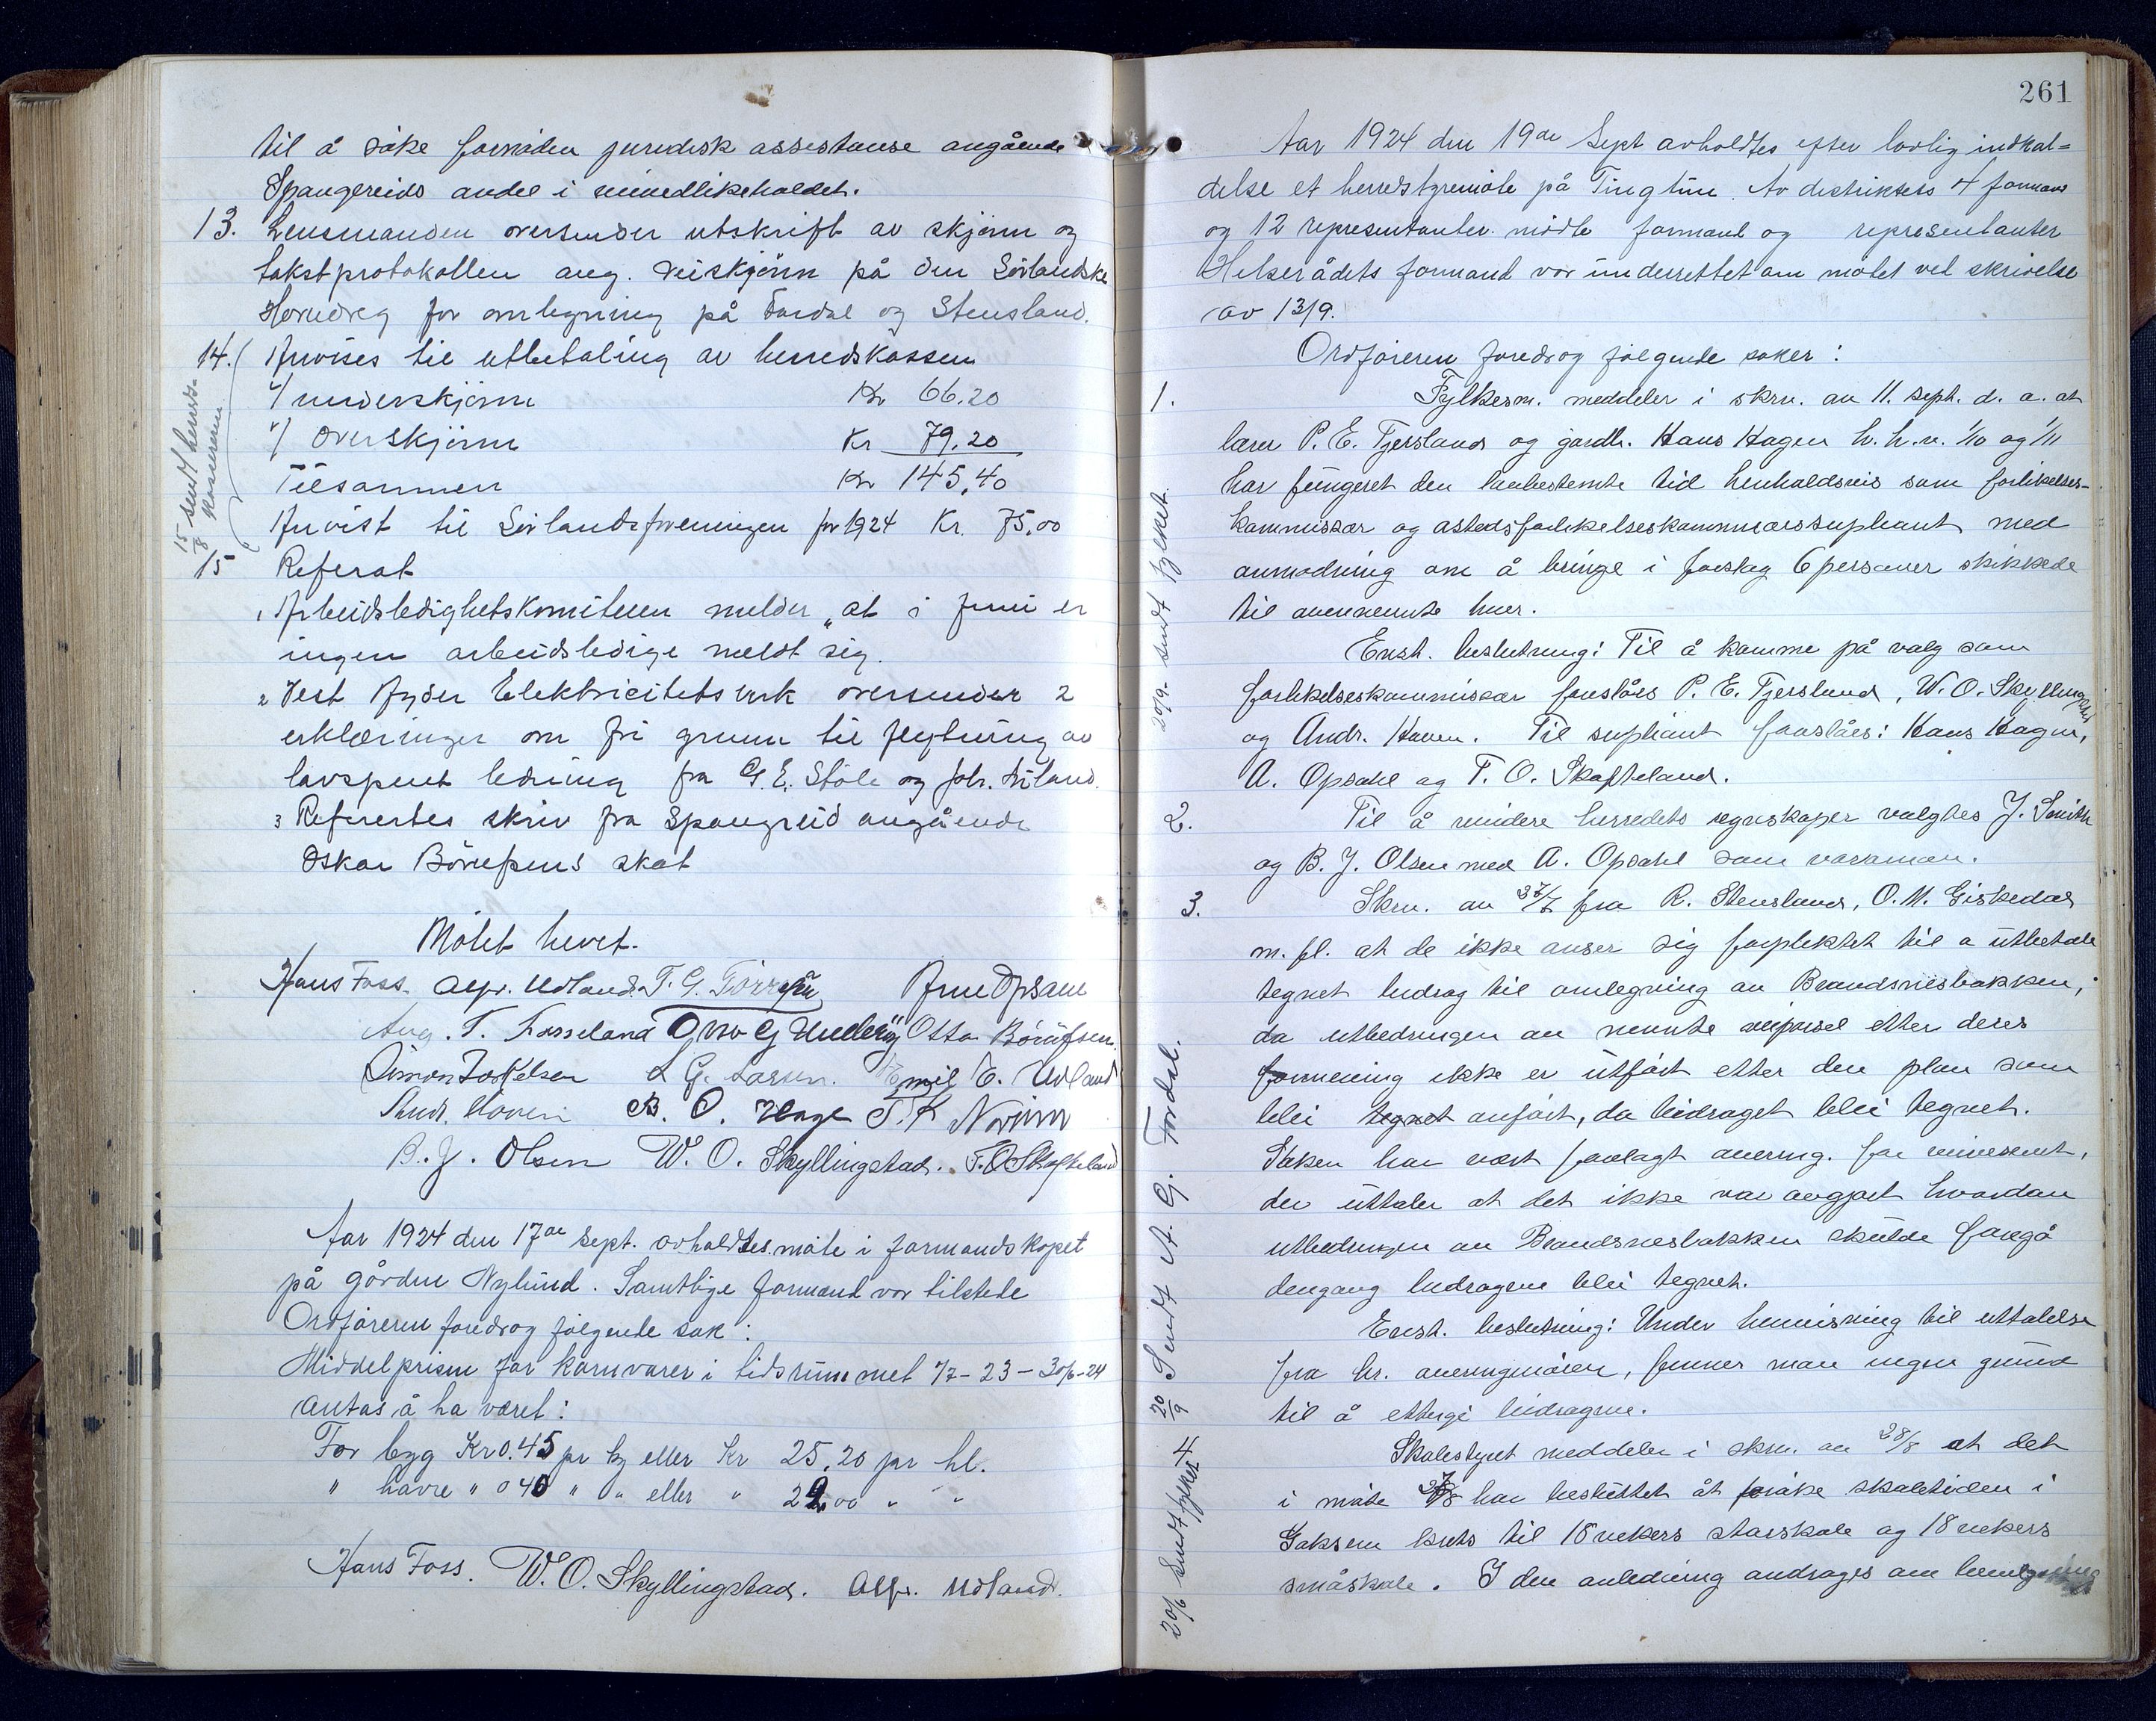 til å søke fornøden juridisk assistanse angående
Spangereids andel i vinedlikeholdet.
13. Lensmanden oversender utskrift av skjønn og
takstprotokollen ang. veiskjønn på den Sørlandske
Hovedveg for omlegning på Fardal og Stensland.
14. Anvises til utbetaling av herredskassen
a/ underskjønn Kr 66.20
b/ overskjønn Kr 79.20
Tilsammen Kr 145,40
Anvist til Sørlandsforeningen for 1924 Kr. 75,00
15/8 sendt herreds-
kassereren
15 Referat
1 Arbeidsledighetskomiteen melder „at i juni er
ingen arbeidsledige meldt sig.
2 Vest Agder Elektricitetsverk oversender 2
erklæringer om fri grunn til flytning av
lavspent ledning fra G. E. Støle og Joh. Åvland.
3 Refertes skriv fra Spangreid angående
Oskar Børufsens skat
Møtet hevet.
Hans Foss. Alfr. Udland. T. G. Tørresen Arne Opsahl
Aug. T. Fosseland Gno G Underøy Otto Børufsen.
Simon Toskelsen L G. Larsen. Emil E. Udland
Andr. Hoven B. O. Hage T. K Norum
B. J. Olsen W. O. Skyllingstad. T. O Skofteland
Aar 1924 den 17de Sept. avholdtes møte i formandskapet
på gården Nylund. Samtlige formend var tilstede
Ordføreren foredrog følgende sak:
Middelprisen for kornvarer i tidsrummet 1/7-23 - 30/6-24
antas å ha været:
For byg Kr 0.45 pr kg eller Kr 25.20 pr hl.
" havre " 0 40 " " eller " 22,00 " "
Hans Foss. W. O. Skyllingstad. Alfr. Udland.
261
Aar 1924 den 19de Sept avholdtes efter lovlig indkal=
delse et herredstyremøte på Tingtun. Av distriktets 4 formend
og 12 representanter møtte formend og representanter
Helserådets formand var underrettet om møtet ved skrivelse
av 13/9.
Ordføreren foredrog følgende saker:
1. Fylkesm. meddeler i skrv. av 11. sept. d. a. at
lærer P. E. Tjersland og gardb. Hans Hagen h. h. v. 1/10 og 1/11
har fungeret den lovbestemte tid henholdsvis som forlikelses-
kommissær og åstedsforlikelseskommissærsupleant med
anmodning om å bringe i forslag 6 personer skikkede
til overnevnte hver.
20/9- sendt fylket.
Enst. beslutning: Til å komme på valg som
forlikelseskommissær foreslåes P. E. Tjersland, W. O. Skyllingstad
og Andr. Hoven. Til supleant foreslåes: Hans Hagen,
A. Opsahl og T. O. Skofteland.
2. Til å revidere herredets regnskaper valgtes J. Smith
og B. J. Olsen med A. Opsahl som varaman.
3. Skrv. av 27/7 fra R. Stensland, O. M. Giskedal
m. fl. at de ikke anser sig forpliktet til å utbetale
tegnet bidrag til omlegning av Brandsnesbakken,
da utbedringen av nevnte veiparsel etter deres
formening ikke er utført etter den plan som
blei tegnet anført, da bidraget blei tegnet.
Saken har vært forelagt avering. for
der uttaler at det ikke var avgjort hvordan
utbedringen av Brandsnesbakken skulde foregå
dengang bidragene blei tegnet.
20/9 Sendt A. G. Fordal.
Enst. beslutning: Under henvisning til uttalelse
fra hr. averingeniøren, finner man ingen grund
til å ettergi bidragene.
20/6 Sendt fylket 4
Skolestyret meddeler i skrv. av 28/8 at det
i møte 27/8 har besluttet åt øke skoletiden i
Jaksen krets til 18 ukers storskole og 18 ukers
småskole. I den anledning andrages om bevilgning